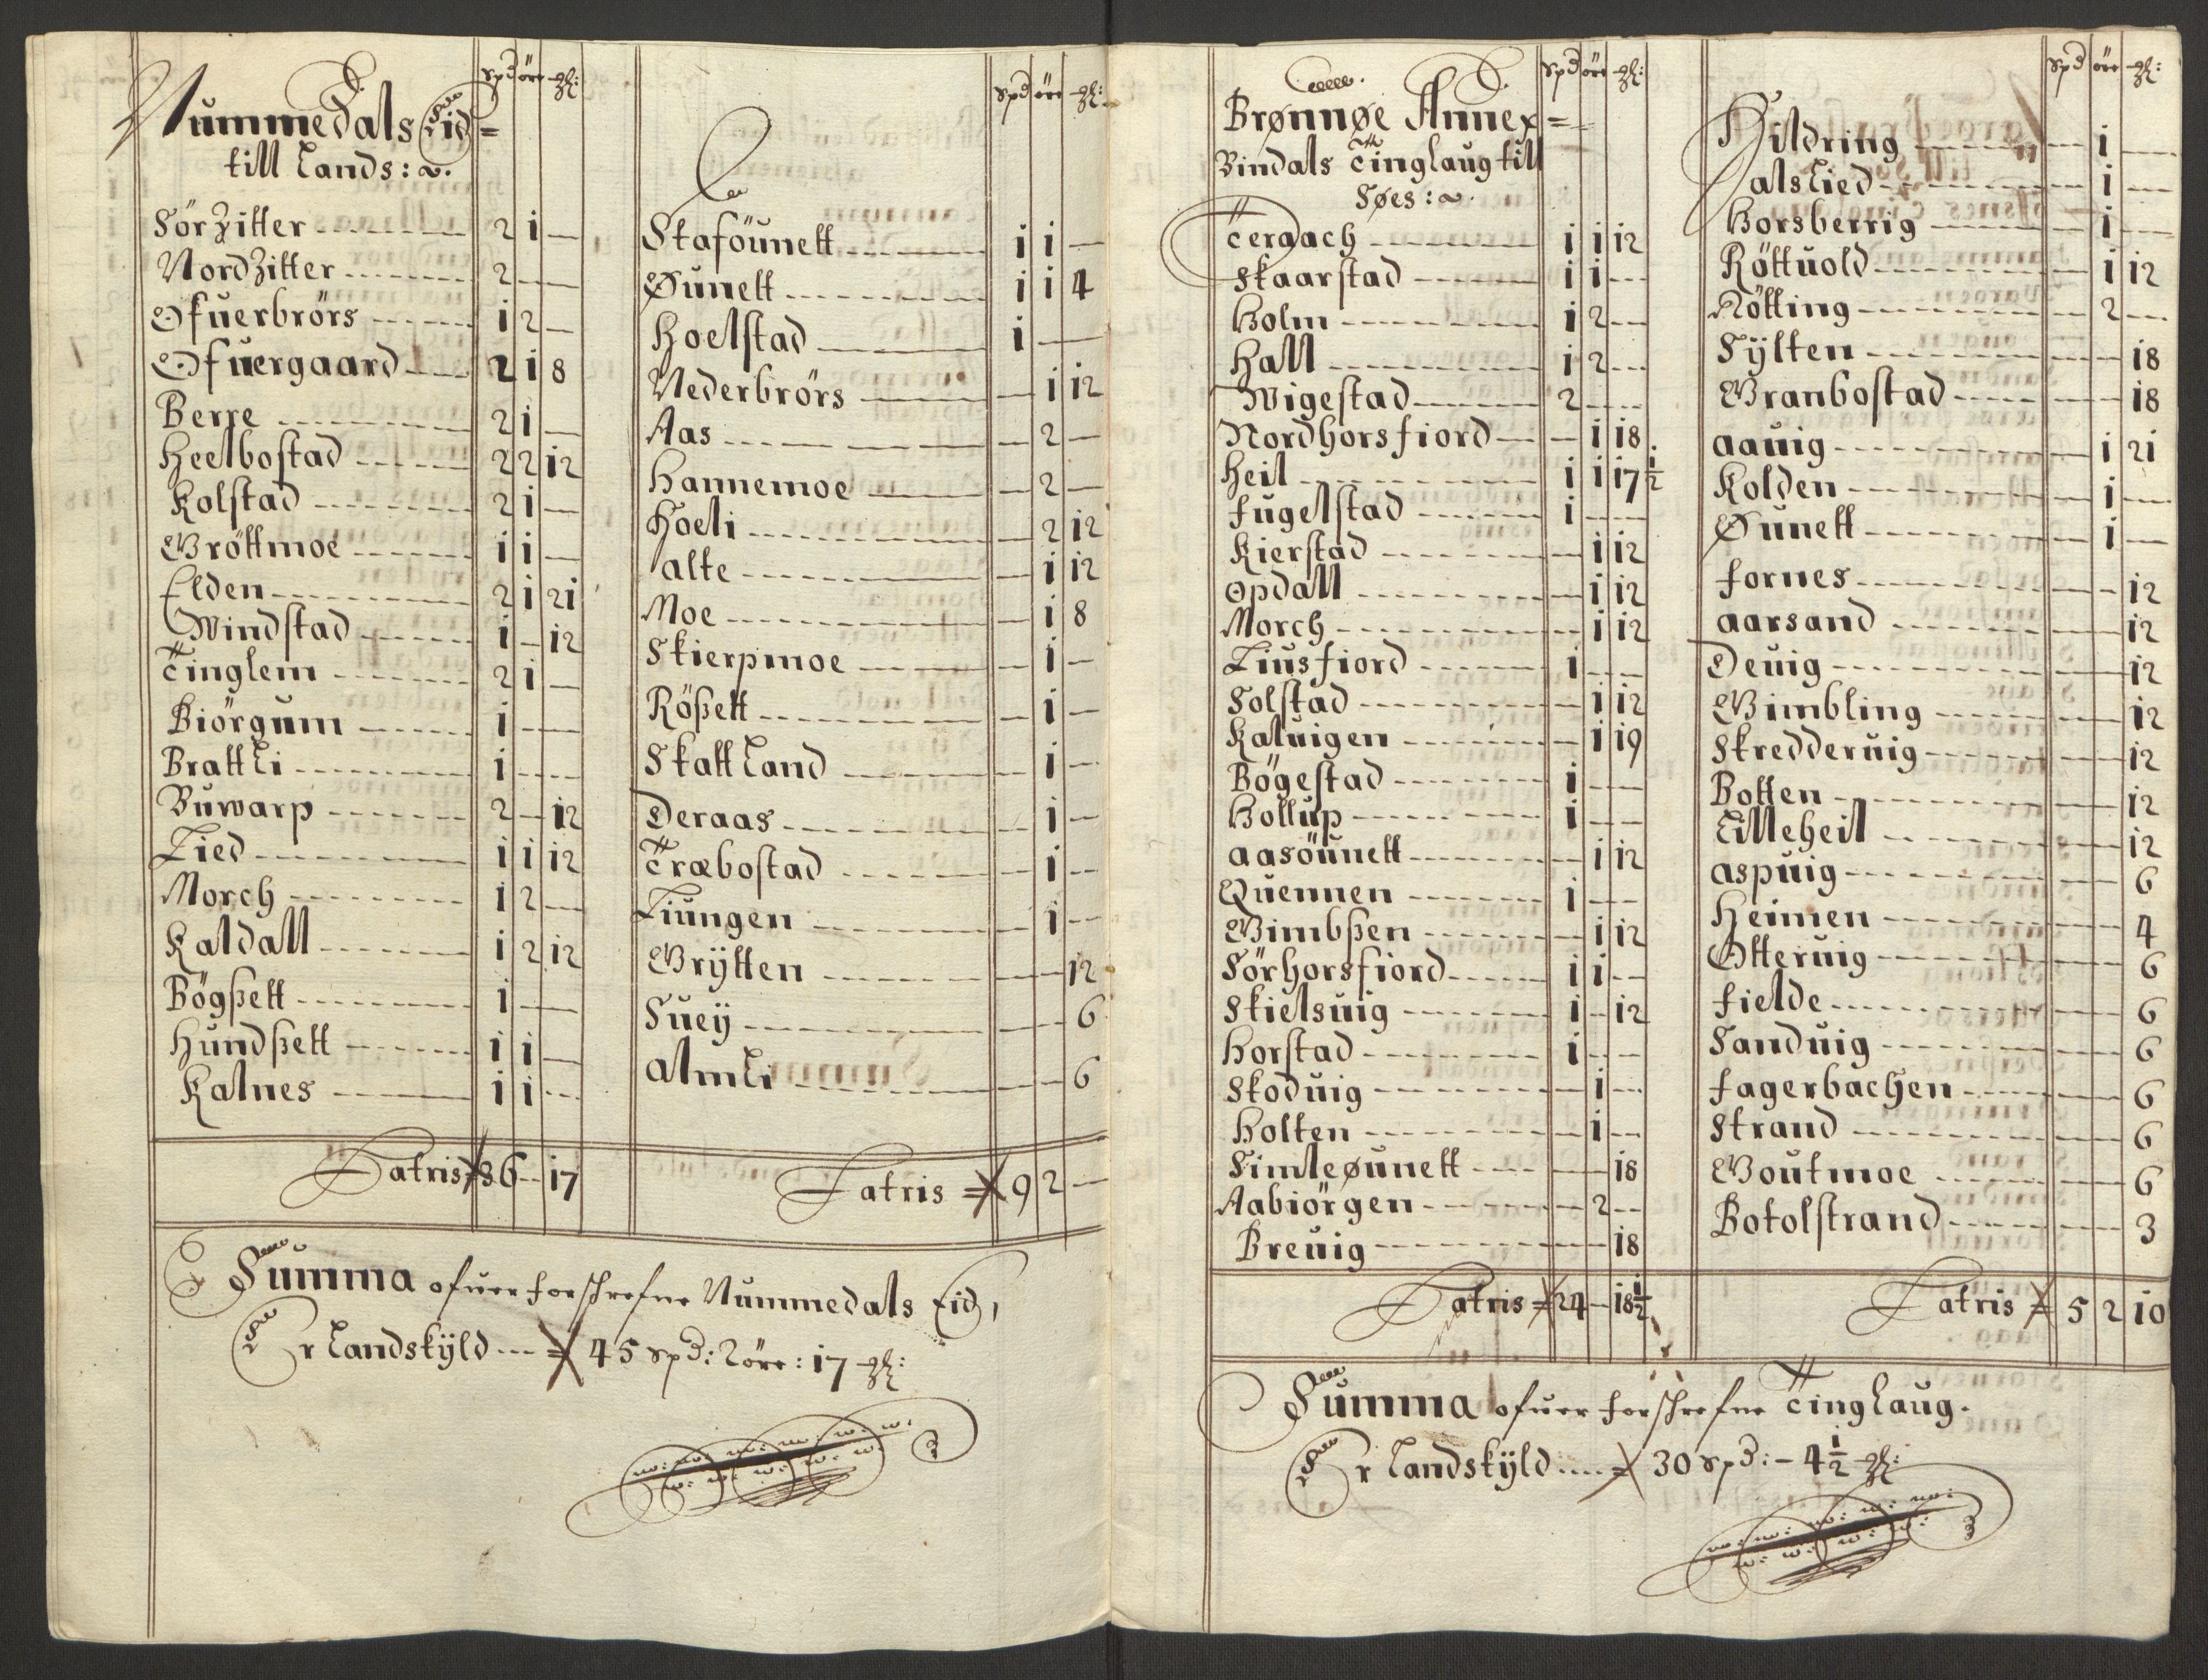 Nummedals Eid =
till Lands:
Spd öre gl:
Sör Zitter 2 1 —
Nord Zitter 2 — —
Ofuerbrörs 1 2 —
Ofuergaard 2 1 8
Berre 2 1 —
Heelbostad 2 2 12
Kolstad 2 1 —
Gröttmoe 1 1 —
Elden 2 1 21
Windstad 1 — 12
Tinglem 2 1 —
Biörgum 1 — —
Brattli 1 — —
Buwarp 2 — 12
Lied 1 1 12
Morch 1 2 —
Kaldall 1 2 12
Bögßett 1 — —
Hundßett 1 1 —
Kalnes 1 1 —
Latris 36 — 17
Spd öre gl:
Staföunett 1 1 —
Øunett 1 1 4
Hoelstad 1 — —
Nederbrörs — 1 12
Aas — 2 —
Hannemoe — 2 —
Hoeli — 2 12
alte — 1 12
Moe — 1 8
Skierpmoe — 1 —
Rößett — 1 —
Skattland — 1 —
Deraas — 1 —
Træbostad — 1 —
Liungen — 1 —
Grÿtten — — 12
Sueÿ — — 6
almli — — 6
Latris 9 2 —
Summa ofuer forschrefne Nummedals Eid,
Er Landskÿld 45 spd: 2 öre: 17 gl:
Brønnøe Annex =
Bindals Tinglaug till
Søes:
Spd öre gl:
Tergach 1 1 12
Skaarstad 1 1 —
Holm 1 2 —
Hall 1 2 —
Wigestad 2 — —
Nordhorsfiord — 1 18
Heil 1 1 17 1/2
Fugelstad 1 — —
Kierstad — 1 12
Opdall — 1 12
Morch — 1 12
Liusfiord 1 — —
Solstad — 1 12
Kaluigen — 1 19
Bögestad 1 — —
Hollup 1 — —
aasöunett — 1 12
Quennen 1 — —
Gimbßen — 1 12
Sörhorsfiord 1 1 —
Skielsuig 1 — 12
Horstad 1 — —
Skoduig — 1 —
Holten — 1 —
Simleøunett — — 18
Aabiörgen — 2 —
Breuig — — 18
Latris 24 — 18 1/2
Spd öre gl:
Hildring — 1 —
alslied — 1 —
Horsberrig — 1 —
Röttuold — 1 12
Nötting — 2 —
Sÿlten — — 18
Granbostad — — 18
aauig — 1 21
Kolden — 1 —
Øunett — 1 —
Fornes — — 12
aarsand — — 12
Deuig — — 12
Gimbling — — 12
Skredderuig — — 12
Botten — — 12
Lilleheil — — 12
aspuig — — 6
Heimen — — 4
Otteruig — — 6
Fielde — — 6
Sanduig — — 6
Fagerbachen — — 6
Strand — — 6
Goutmoe — — 6
Botolstrand — — 3
Latris 5 2 10
Summa ofuer forschrefne Tinglaug.
Er Landskÿld 30 spd: – 4 1/2 gl: